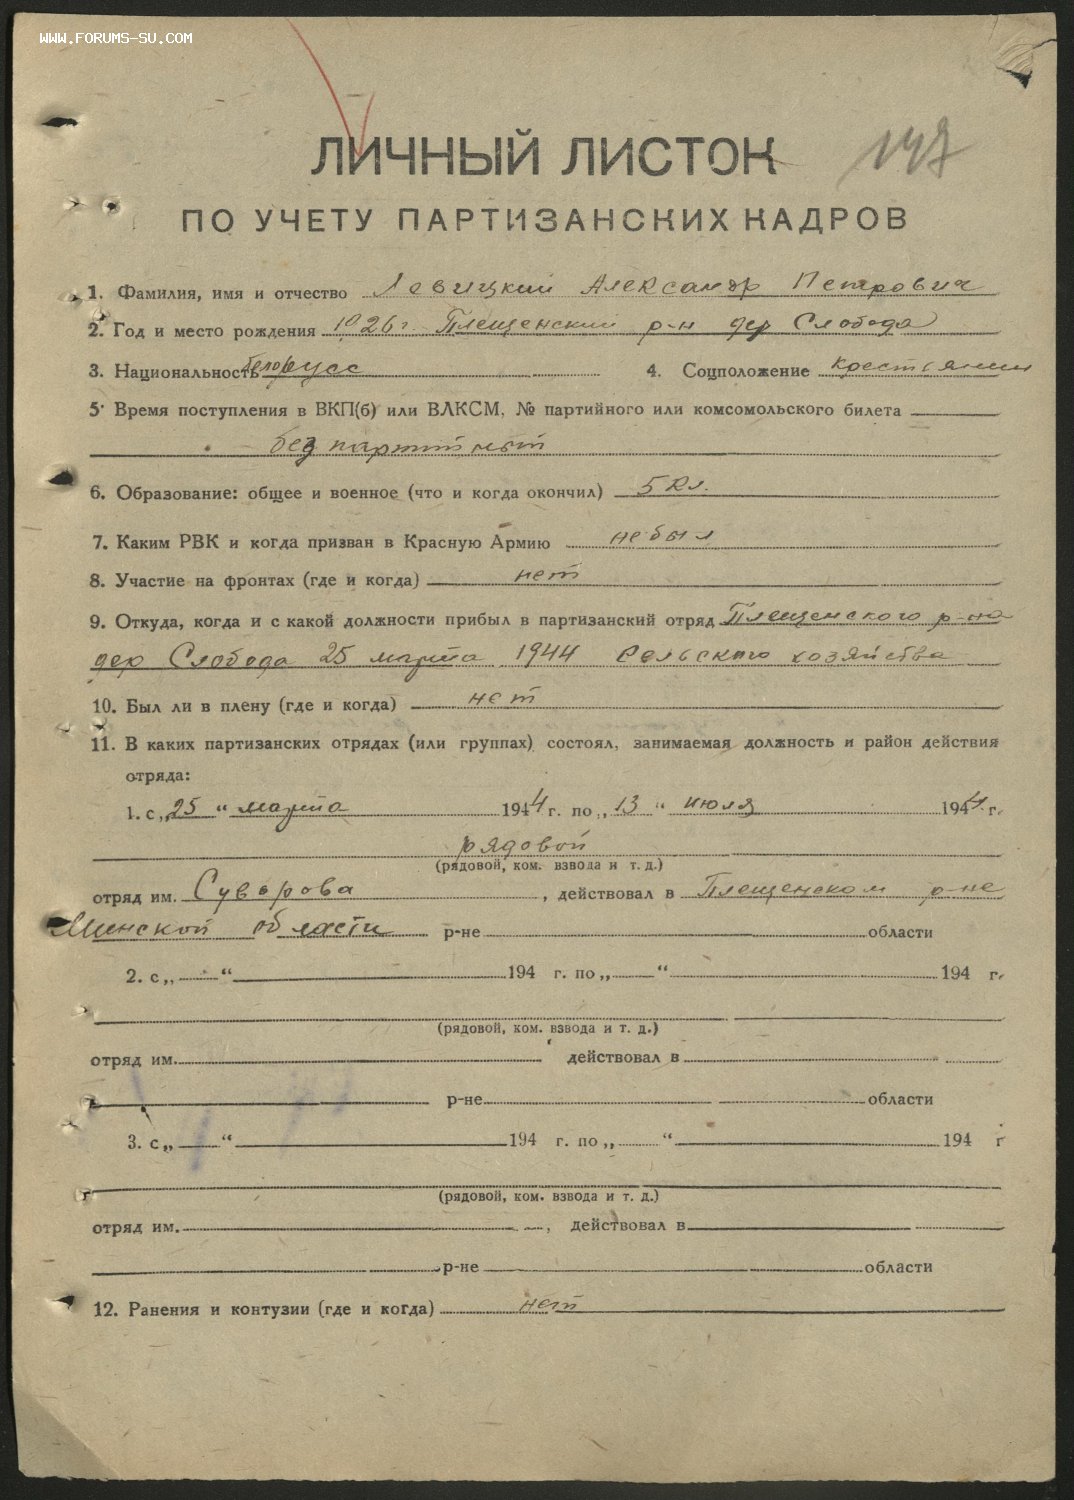 WWW.FORUMS-SU.COM
ЛИЧНЫЙ ЛИСТОК
ПО УЧЕТУ ПАРТИЗАНСКИХ КАДРОВ
1. Фамилия, имя и отчество Левицкий Александр Петрович
2. Год и место рождения 1926 г Плещенский р-н дер Слобода
3. Национальность белорусс 4. Соцположение крестьянин
5. Время поступления в ВКП(б) или ВЛКСМ, № партийного или комсомольского билета
без партийный
6. Образование: общее и военное (что и когда окончил) 5 кл.
7. Каким РВК и когда призван в Красную Армию не был
8. Участие на фронтах (где и когда) нет
9. Откуда, когда и с какой должности прибыл в партизанский отряд Плещенского р-на
дер Слобода 25 марта 1944 сельского хозяйства
10. Был ли в плену (где и когда) нет
11. В каких партизанских отрядах (или группах) состоял, занимаемая должность и район действия
отряда:
1. с „25“ марта 1944 г. по „13“ июля 1944 г.
рядовой
(рядовой, ком. взвода и т. д.)
отряд им. Суворова, действовал в Плещенском р-не
Минской области р-не области
2. с „ “ 194 г. по „ “ 194 г.
(рядовой, ком. взвода и т. д.)
отряд им. действовал в
р-не области
3. с „ “ 194 г. по „ “ 194 г
(рядовой, ком. взвода и т. д.)
отряд им. , действовал в
р-не области
12. Ранения и контузии (где и когда) нет